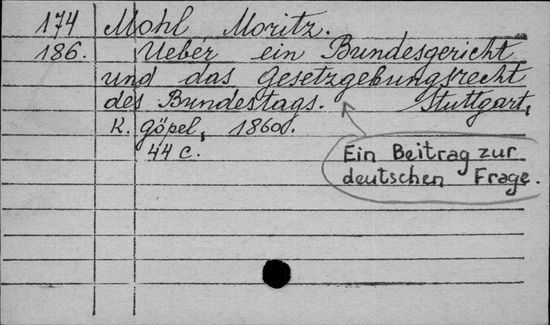 174 Mohl Moritz.
186. Ueber ein Bundesgericht
und das Gesetzgebungsrecht
des Bundestags. Stuttgart,
K. Göpel, 1860.
44 c.
Ein Beitrag zur
deutschen Frage.